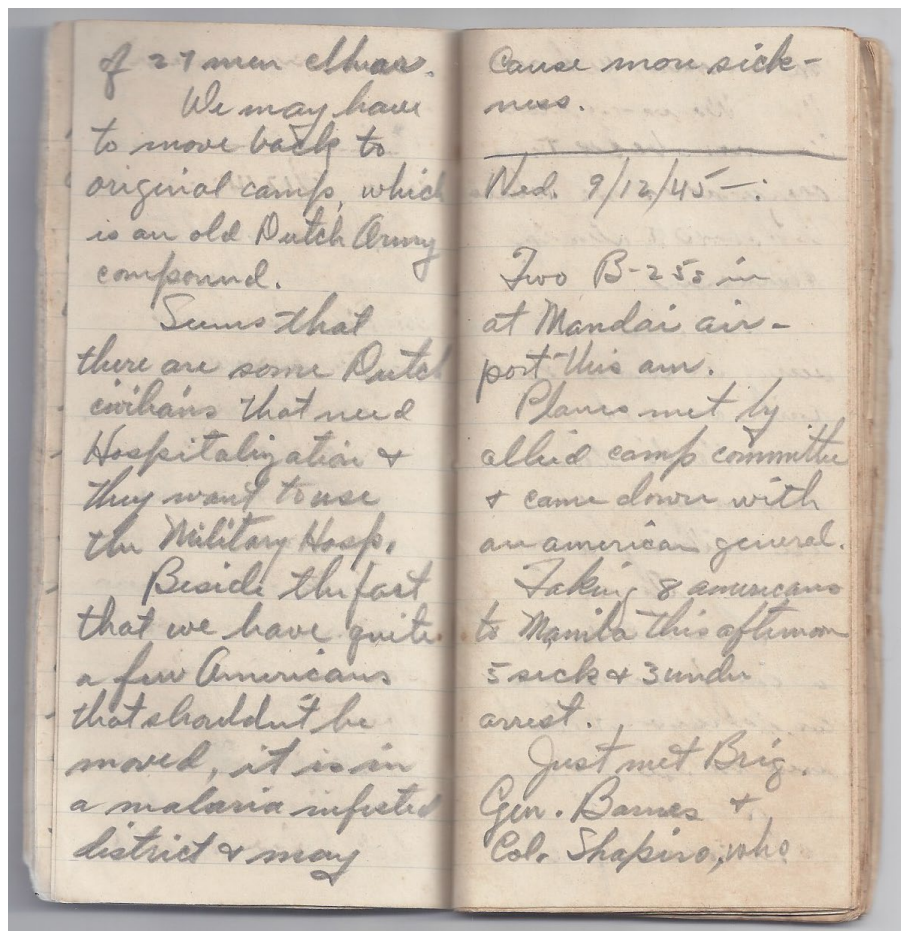 of 27 men
We may have
to move back to
original camp, which
is an old Dutch Army
compound.
Seems that
there are some Dutch
civilians that need
Hospitalization &
they want to use
the Military Hosp.
Beside the fact
that we have quite
a few Americans
that shouldn't be
moved, it is in
a malaria infested
district & may
cause more sick-
ness.
Wed. 9/12/45—:
Two B-25s in
at Mandai air-
port this am.
Planes met by
allied camp committee
& came down with
an american general.
Taking 8 americans
to Manila this afternoon
5 sick & 3 under
arrest.
Just met Brig.
Gen. Barnes &
Col. Shapiro, who